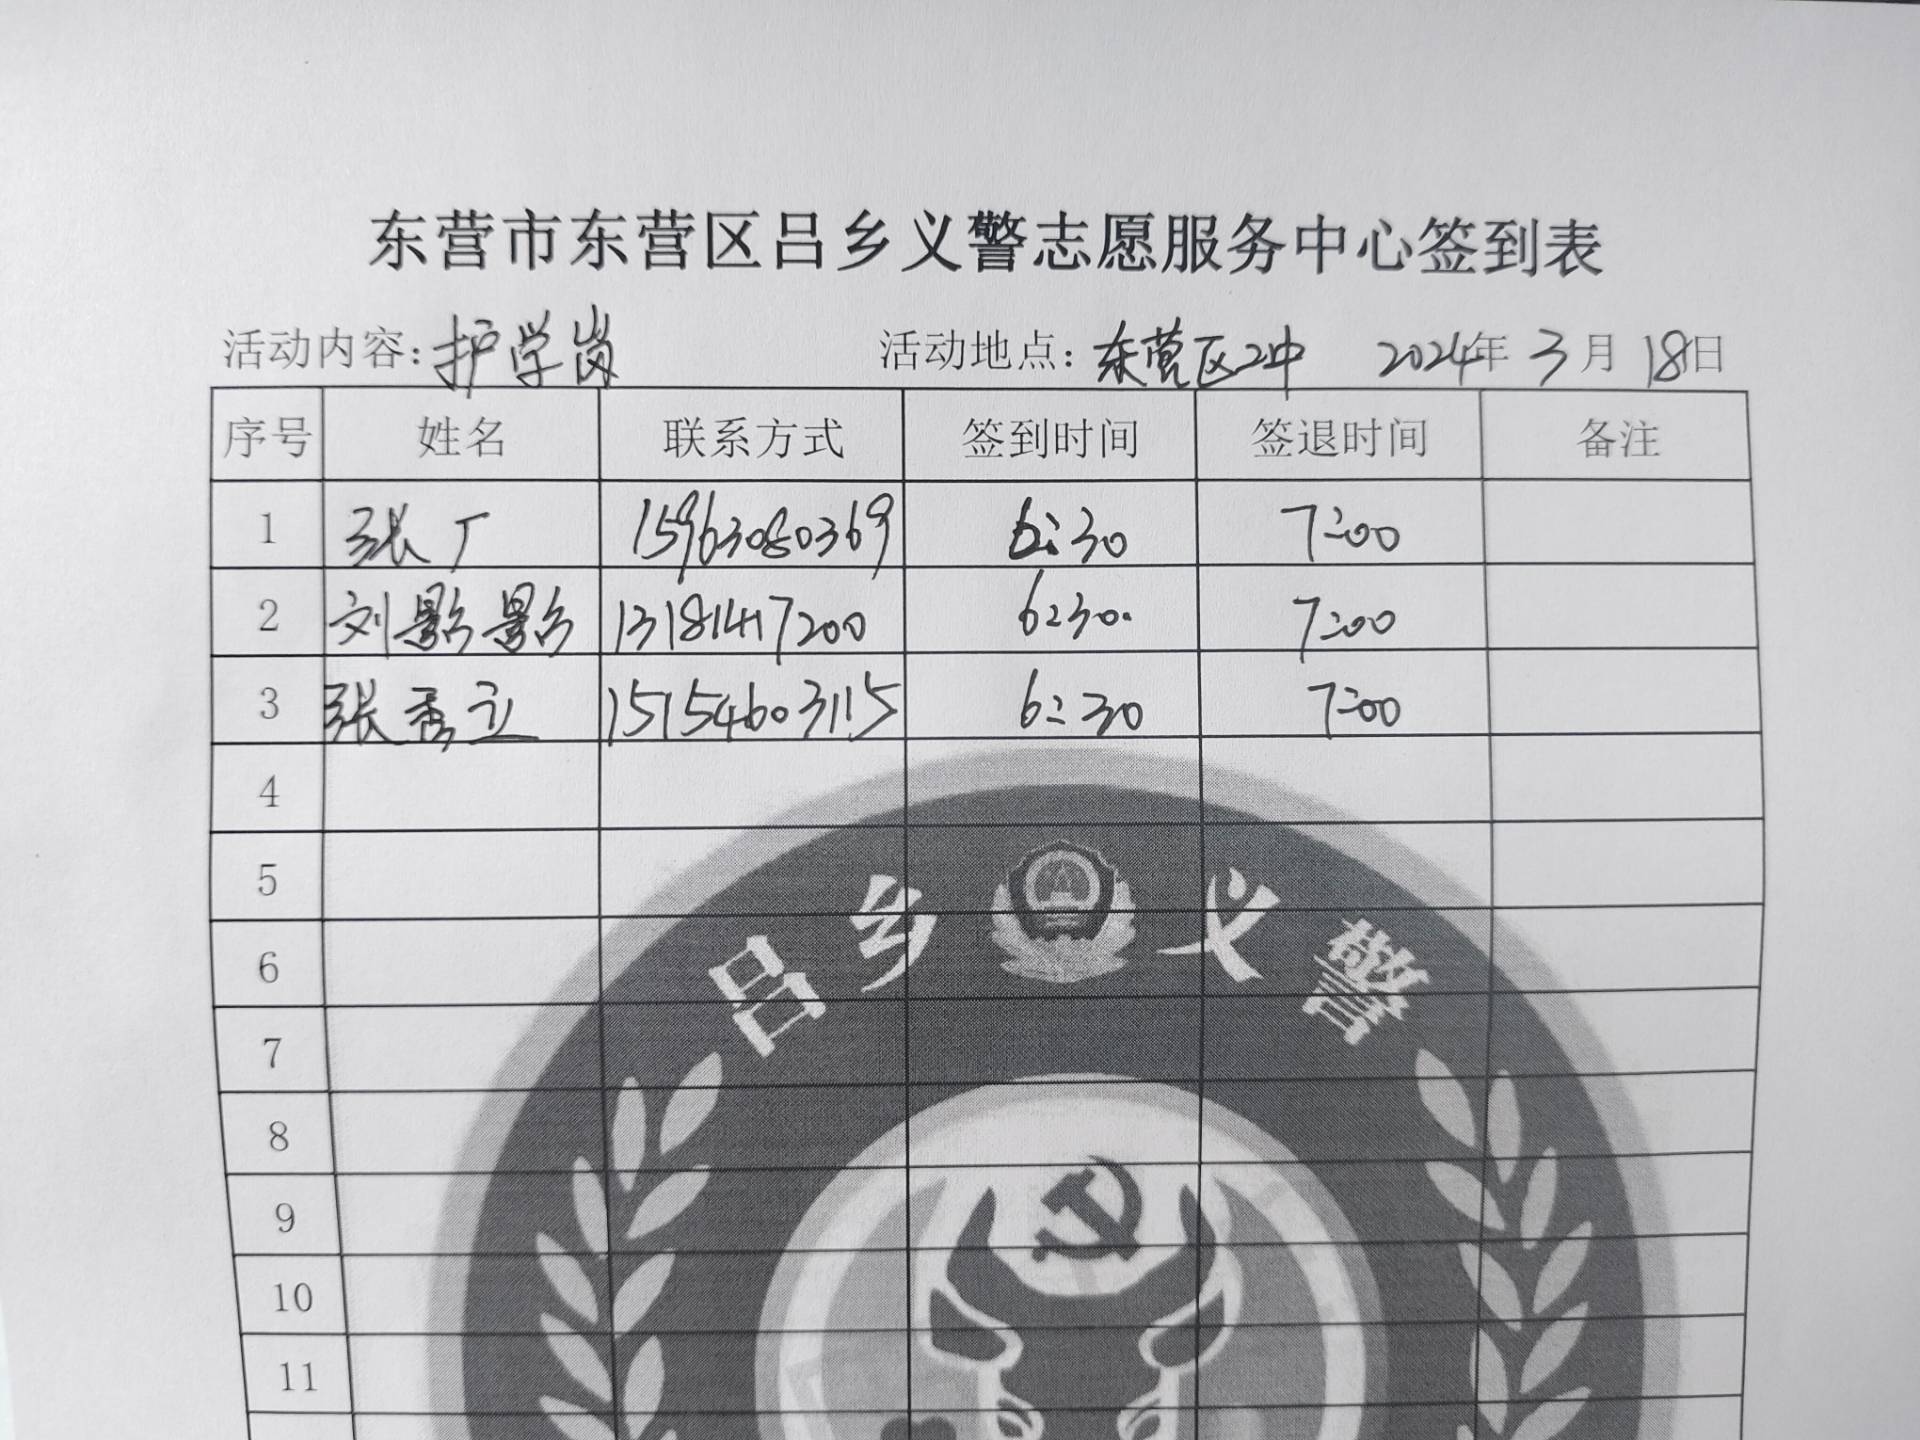 东营市东营区吕乡义警志愿服务中心签到表
活动内容：护学岗 活动地点：东营区2中 2024年3月18日
序号 姓名 联系方式 签到时间 签退时间 备注
1 张广 15963080369 6:30 7:00
2 刘影影 13181417200 6:30 7:00
3 张秀立 15154603115 6:30 7:00
4
5
6
7
8
9
10
11
吕乡义警